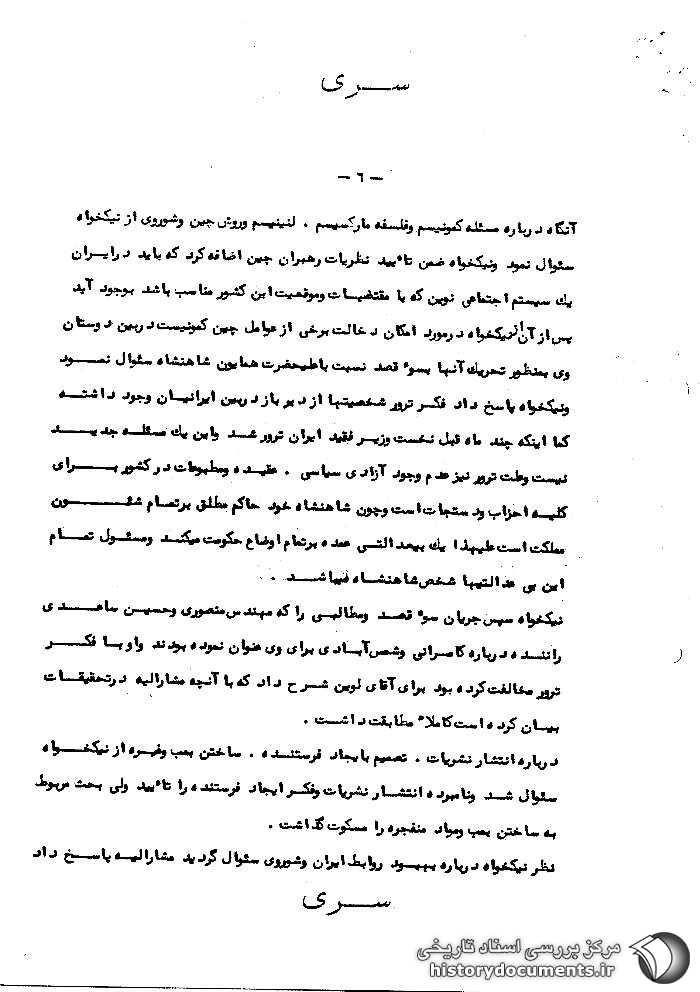 سری
- ٦ -
آنگاه درباره مسئله کمونیسم وفلسفه مارکسیسم ، لنینیسم وروش چین وشوروی از نیکخواه
سئوال نمود ونیکخواه ضمن تائیید نظریات رهبران چین اضافه کرد که باید درایران
یك سیستم اجتماعی نوین که با مقتضیات وموقعیت این کشور مناسب باشد بوجود آید
پس از آن از نیکخواه درمورد امکان دخالت برخی از عوامل چین کمونیست دربین دوستان
وی بمنظور تحریك آنها بسوء قصد نسبت باعلیحضرت همایون شاهنشاه سئوال نمود
ونیکخواه پاسخ داد فکر ترور شخصیتها از دیر باز دربین ایرانیان وجود داشته
کما اینکه چند ماه قبل نخست وزیر فقید ایران ترور شد واین یك مسئله جدید
نیست وعلت ترور نیز عدم وجود آزادی سیاسی ، عقیده ومطبوعات در کشور برای
کلیه احزاب ودستجات است وچون شاهنشاه خود حاکم مطلق برتمام شئون
مملکت است علیهذا یك بیعدالتی عمده برتمام اوضاع حکومت میکند ومسئول تمام
این بی عدالتیها شخص شاهنشاه میباشد .
نیکخواه سپس جریان سوء قصد ومطالبی را که مهندس منصوری وحسین ساعدی
راننده درباره کامرانی وشمس‌آبادی برای وی عنوان نموده بودند واو با فکر
ترور مخالفت کرده بود برای آقای لوین شرح داد که با آنچه مشارالیه درتحقیقات
بیان کرده است کاملا" مطابقت داشت .
درباره انتشار نشریات ، تصمیم بایجاد فرستنده ، ساختن بمب وغیره از نیکخواه
سئوال شد ونامبرده انتشار نشریات وفکر ایجاد فرستنده را تائیید ولی بحث مربوط
به ساختن بمب ومواد منفجره را مسکوت گذاشت .
نظر نیکخواه درباره بهبود روابط ایران وشوروی سئوال گردید مشارالیه پاسخ داد
سری
مرکز بررسی اسناد تاریخی
historydocuments.ir